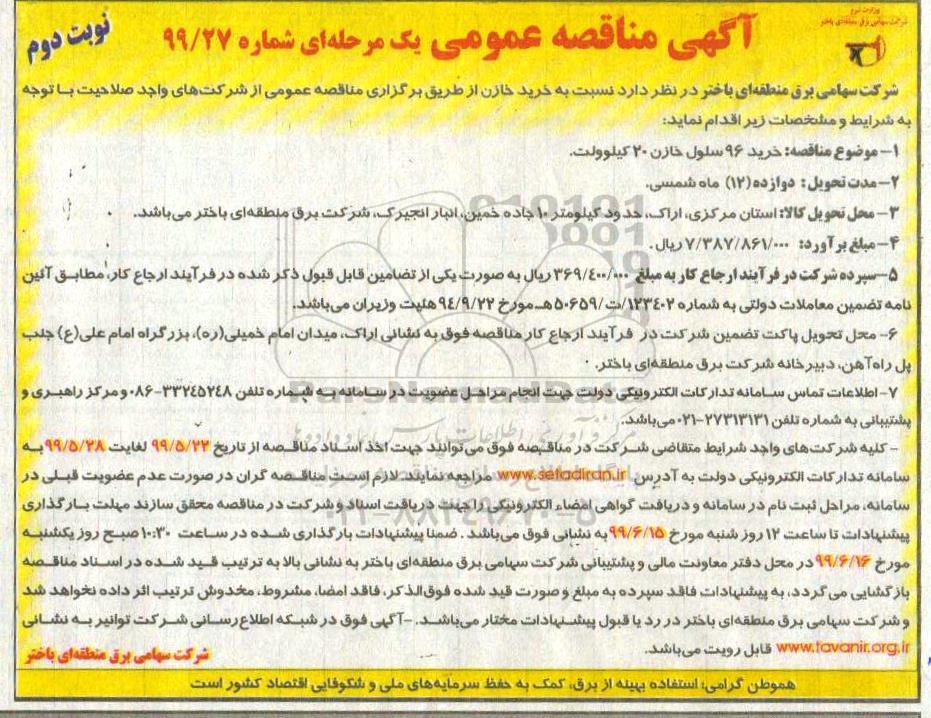 وزارت نیرو
شرکت سهامی برق منطقه‌ای باختر
آگهی مناقصه عمومی یک مرحله‌ای شماره ۹۹/۲۷
نوبت دوم
شرکت سهامی برق منطقه‌ای باختر در نظر دارد نسبت به خرید خازن از طریق برگزاری مناقصه عمومی از شرکت‌های واجد صلاحیت با توجه
به شرایط و مشخصات زیر اقدام نماید:
۱- موضوع مناقصه: خرید ۹۶ سلول خازن ۲۰ کیلوولت.
۲- مدت تحویل: دوازده (۱۲) ماه شمسی.
۳- محل تحویل کالا: استان مرکزی، اراک، حدود کیلومتر ۱۰ جاده خمین، انبار انجیرک، شرکت برق منطقه‌ای باختر می‌باشد.
۴- مبلغ برآورد: ۷/۳۸۷/۸۶۱/۰۰۰ ریال.
۵- سپرده شرکت در فرآیند ارجاع کار به مبلغ ۳۶۹/۴۰۰/۰۰۰ ریال به صورت یکی از تضامین قابل قبول ذکر شده در فرآیند ارجاع کار، مطابق آئین
نامه تضمین معاملات دولتی به شماره ۱۲۳۴۰۲/ت/۵۰۶۵۹هـ مورخ ۹۴/۹/۲۲ هئیت وزیران می‌باشد.
۶- محل تحویل پاکت تضمین شرکت در فرآیند ارجاع کار مناقصه فوق به نشانی اراک، میدان امام خمینی(ره)، بزرگراه امام علی(ع) جنب
پل راه‌آهن، دبیرخانه شرکت برق منطقه‌ای باختر.
۷- اطلاعات تماس سامانه تدارکات الکترونیکی دولت جهت انجام مراحل عضویت در سامانه به شماره تلفن ۳۳۲۴۵۲۴۸-۰۸۶ و مرکز راهبری و
پشتیبانی به شماره تلفن ۲۷۳۱۳۱۳۱-۰۲۱ می‌باشد.
- کلیه شرکت‌های واجد شرایط متقاضی شرکت در مناقصه فوق می‌توانند جهت اخذ اسناد مناقصه از تاریخ ۹۹/۵/۲۲ لغایت ۹۹/۵/۲۸ به
سامانه تدارکات الکترونیکی دولت به آدرس www.setadiran.ir مراجعه نمایند. لازم است مناقصه گران در صورت عدم عضویت قبلی در
سامانه، مراحل ثبت نام در سامانه و دریافت گواهی امضاء الکترونیکی را جهت دریافت اسناد و شرکت در مناقصه محقق سازند مهلت بارگذاری
پیشنهادات تا ساعت ۱۲ روز شنبه مورخ ۹۹/۶/۱۵ به نشانی فوق می‌باشد. ضمنا پیشنهادات بارگذاری شده در ساعت ۱۰:۳۰ صبح روز یکشنبه
مورخ ۹۹/۶/۱۶ در محل دفتر معاونت مالی و پشتیبانی شرکت سهامی برق منطقه‌ای باختر به نشانی بالا به ترتیب قید شده در اسناد مناقصه
بازگشایی می‌گردد، به پیشنهادات فاقد سپرده به مبلغ و صورت قید شده فوق‌الذکر، فاقد امضا، مشروط، مخدوش ترتیب اثر داده نخواهد شد
و شرکت سهامی برق منطقه‌ای باختر در رد یا قبول پیشنهادات مختار می‌باشد. - آگهی فوق در شبکه اطلاع‌رسانی شرکت توانیر به نشانی
www.tavanir.org.ir قابل رویت می‌باشد.
شرکت سهامی برق منطقه‌ای باختر
هموطن گرامی: استفاده بهینه از برق، کمک به حفظ سرمایه‌های ملی و شکوفایی اقتصاد کشور است